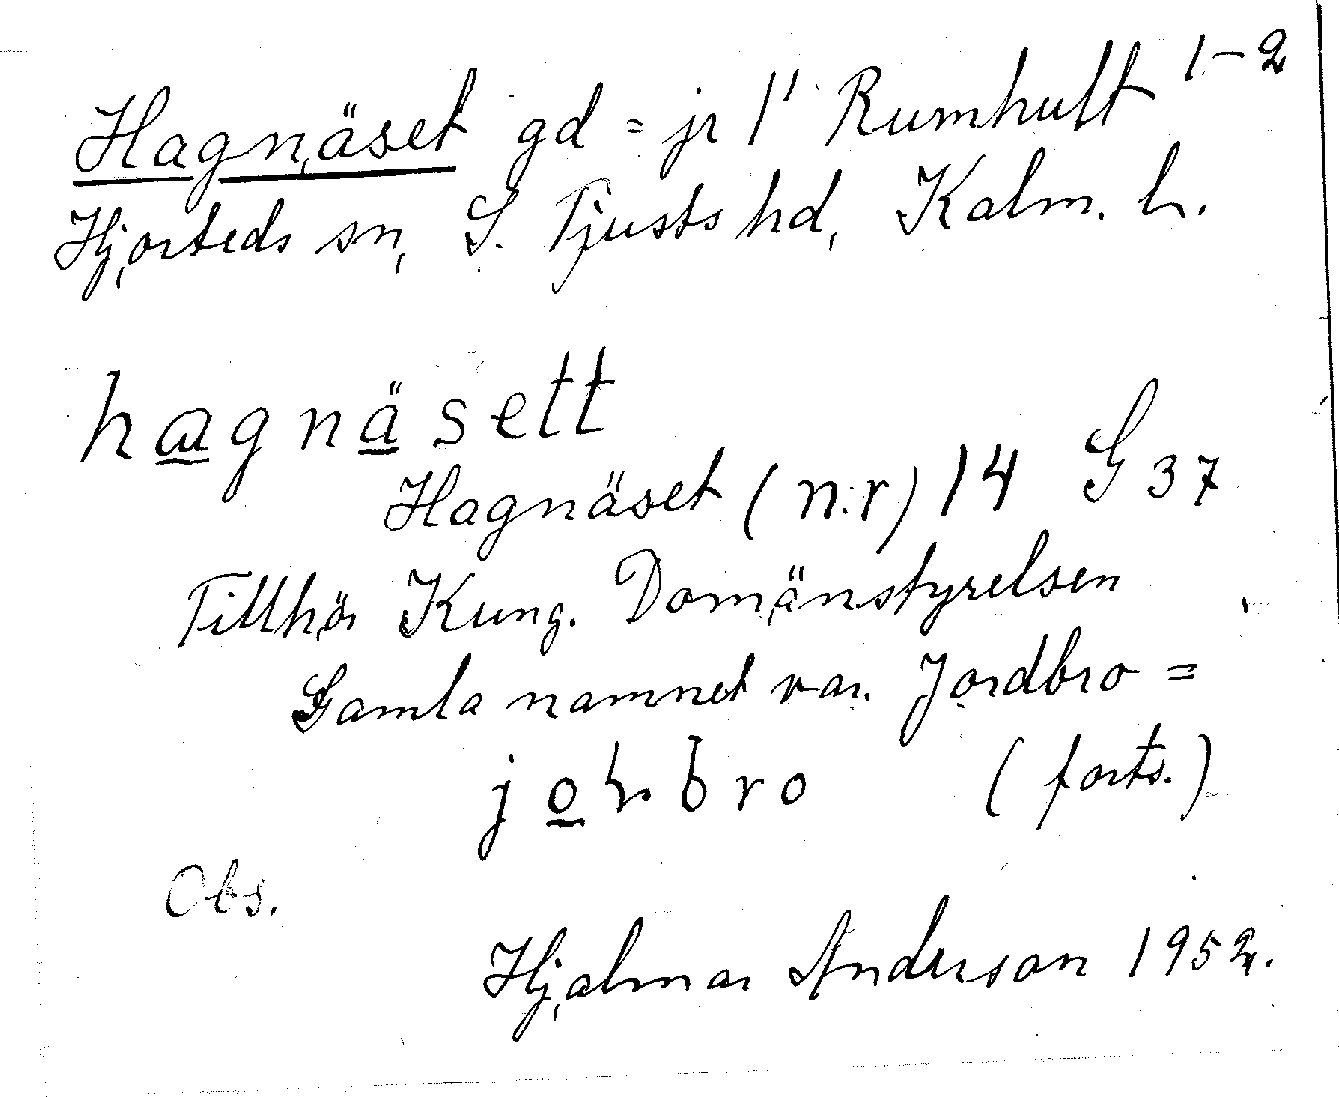 Hagnäset gd = jr 1¹ Rumhult 1-2
Hjorteds sn, S. Tjusts hd, Kalm. l.
hagnäsett
Hagnäset (n.r) 14 G 37
Tillhör Kung. Domänstyrelsen
Gamla namnet var. Jordbro =
bro (forts.)
Obs.
Hjalmar Anderson 1952.